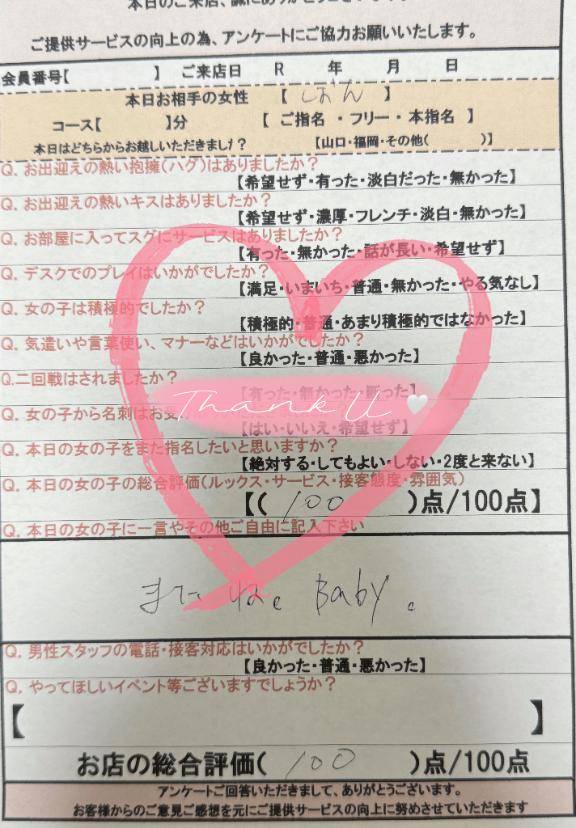 本日のご来店、誠にありがとうございます。
ご提供サービスの向上の為、アンケートにご協力お願いいたします。
会員番号【 】 ご来店日 R 年 月 日
本日お相手の女性 【 しほん 】
コース【 】分 【 ご指名 ・ フリー ・ 本指名 】
本日はどちらからお越しいただきました? 【山口・福岡・その他( )】
Q. お出迎えの熱い抱擁(ハグ)はありましたか?
【希望せず・有った・淡白だった・無かった】
Q. お出迎えの熱いキスはありましたか?
【希望せず・濃厚・フレンチ・淡白・無かった】
Q. お部屋に入ってスグにサービスはありましたか?
【有った・無かった・話が長い・希望せず】
Q. デスクでのプレイはいかがでしたか?
【満足・いまいち・普通・無かった・やる気なし】
Q. 女の子は積極的でしたか?
【積極的・普通・あまり積極的ではなかった】
Q. 気遣いや言葉使い、マナーなどはいかがでしたか?
【良かった・普通・悪かった】
Q.二回戦はされましたか?
【有った・無かった・断った】
Thank U
Q. 女の子から名刺はお受
【はい・いいえ・希望せず】
Q. 本日の女の子をまた指名したいと思いますか?
【絶対する・してもよい・しない・2度と来ない】
Q. 本日の女の子の総合評価(ルックス・サービス・接客態度・雰囲気)
【( 100 )点/100点】
Q. 本日の女の子に一言やその他ご自由に記入下さい
またね。Baby。
Q. 男性スタッフの電話・接客対応はいかがでしたか?
【良かった・普通・悪かった】
Q. やってほしいイベント等ございますでしょうか?
【 】
お店の総合評価( 100 )点/100点
アンケートご回答いただきまして、ありがとうございます。
お客様からのご意見ご感想を元にご提供サービスの向上に努めさせていただきます